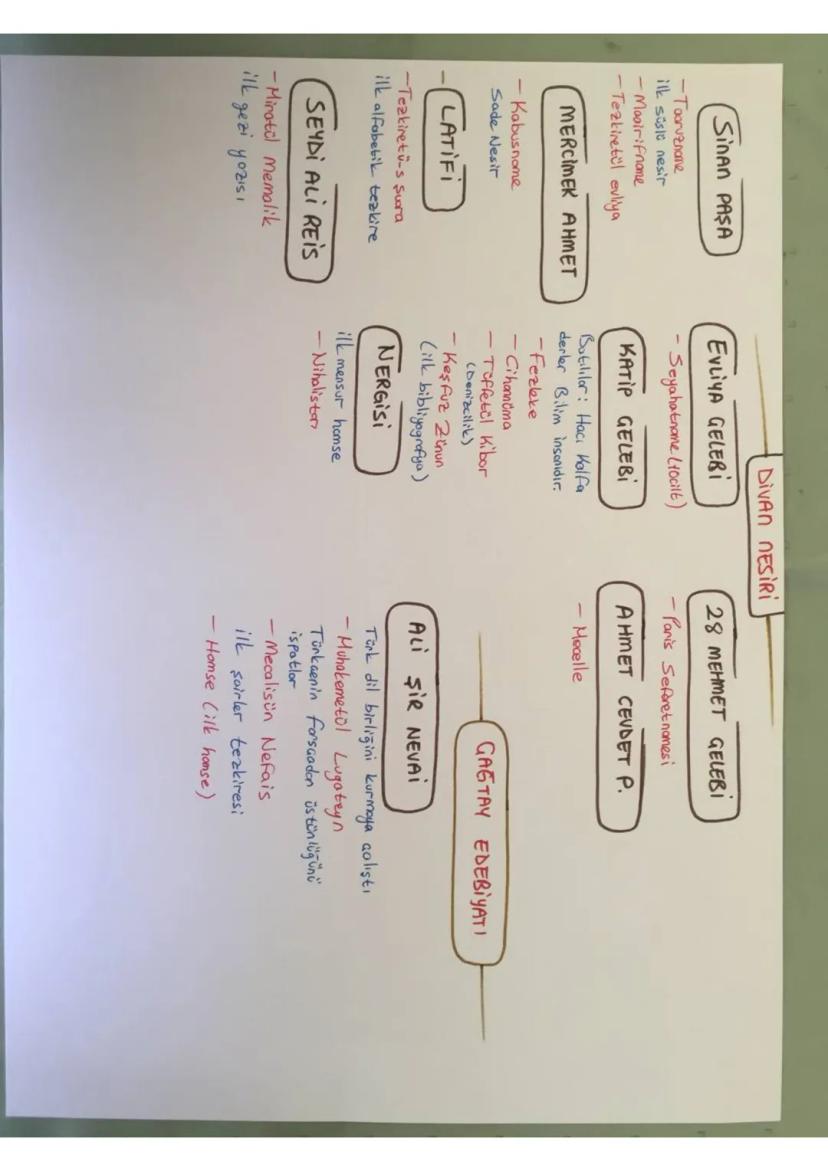 DİVAN NESİRİ
SİNAN PAŞA
- Tazarruname
ilk süslü nesir
- Maarifname
- Tezkiretül evliya
MERCİMEK AHMET
- Kabusname
Sade Nesir
- LATİFİ
- Tezkiretü-s şuara
ilk alfabetik tezkire
SEYDİ ALİ REİS
- Miratül Memalik
ilk gezi yazısı
EVLİYA ÇELEBİ
- Seyahatname (10cilt)
KATİP ÇELEBİ
Batılılar: Hacı Kalfa
derler Bilim insanıdır.
- Fezleke
- Cihannüma
- Tüffetül Kibar
(Denizcilik)
- Keşfüz Zünun
(ilk bibliyografya)
NERGİSİ
ilk mensur hamse
- Nihalistan
28 MEHMET ÇELEBİ
- Paris Sefaretnamesi
AHMET CEVDET P.
- Mecelle
ÇAĞTAY EDEBİYATI
ALİ ŞİR NEVAİ
Türk dil birliğini kurmaya çalıştı
- Muhakemetül Lugateyn
Türkçenin farsçadan üstünlüğünü
ispatlar
- Mecalisün Nefais
ilk şairler tezkiresi
- Hamse (ilk hamse)